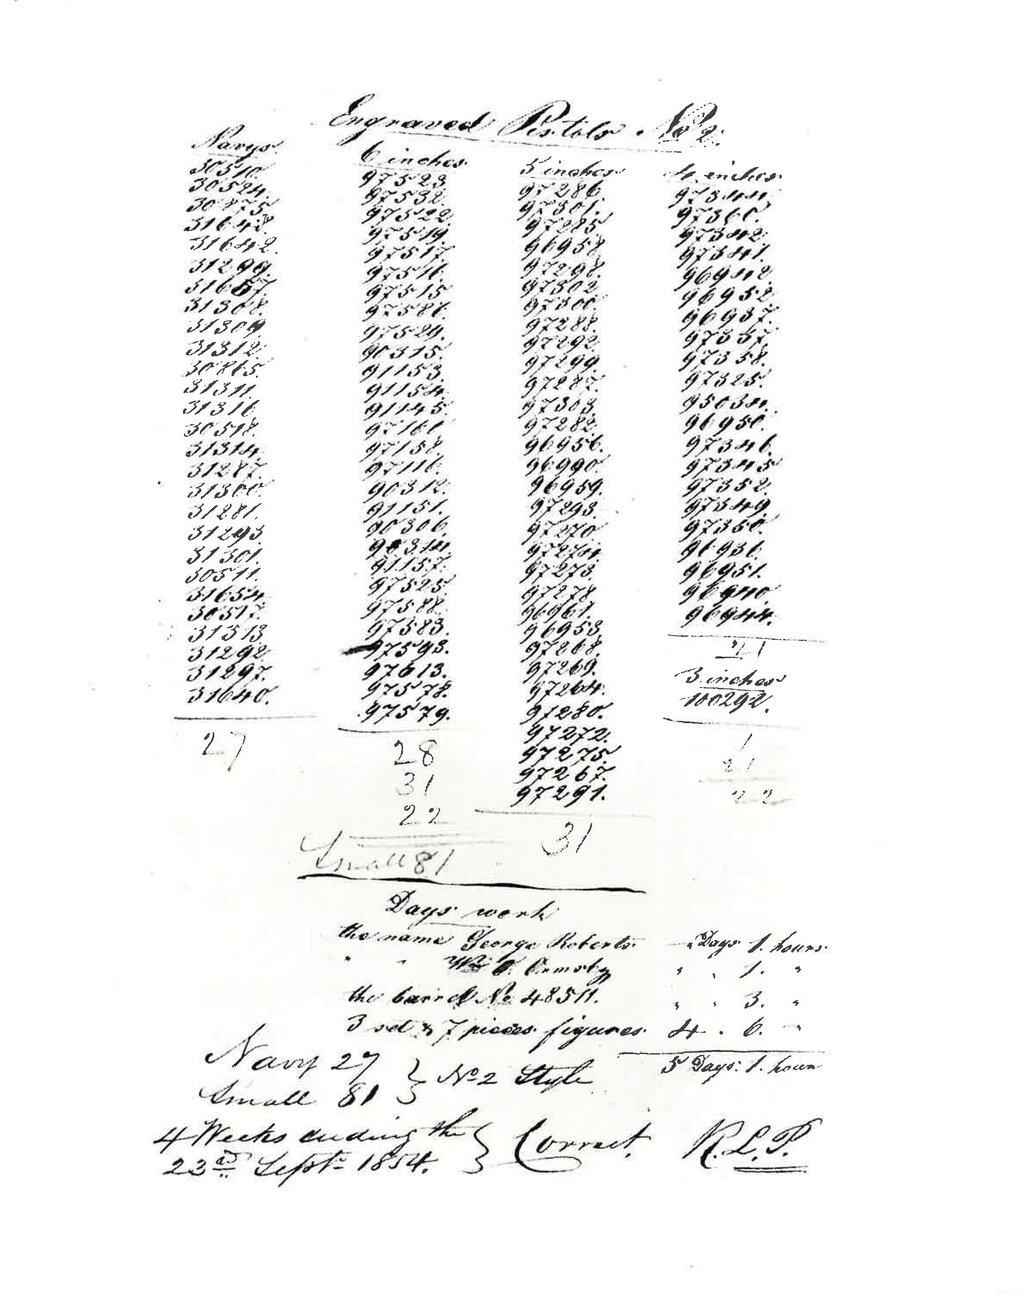 Engraved Pistols No 2.
Navys
30510.
30524.
30875.
31648.
31642.
31299.
31657.
31308.
31309.
31312.
30865.
31311.
31316
30518.
31314.
31287.
31300.
31281.
31293.
31301.
30511.
31654.
30517.
31313
31292
31297.
31640.
27
6 inches
97523.
97532.
97522.
97519.
97517.
97516.
97515
97586.
97524.
90315.
91153.
91154.
91145.
97160.
97158.
97116.
90312.
91151.
90306.
90314.
91157.
97525.
97588.
97583.
97593.
97613.
97578.
97579.
28
31
22
Small 81
5 inches
97286.
97301.
97285
96958
97298.
97302
97300.
97288.
97292.
97299.
97287.
97303
97283.
96956.
96990
96959.
97293.
97270.
97274.
97273.
97278.
96961.
96953
97268.
97269.
97264.
97280.
97272.
97275.
97267.
97291.
31
4 inches
97344.
97360.
97342.
97341.
96942.
96952.
96937.
97357.
97358.
97325.
95034.
96950.
97346.
97345
97352.
97349.
97350.
96936.
96951.
96940
96944.
21
3 inches
100292.
1
21
22
Days work
the name George Roberts - Days 1. hours
" " Wm F. Ormsby " " 1. "
the barrel No 48511. " " 3. "
3 set & 7 pieces figures 4 . 6. "
5 Days. 1. hour
Navy 27 } No 2 Style
Small 81
4 Weeks ending the } Correct. R.L.P.
23rd Sept. 1854.